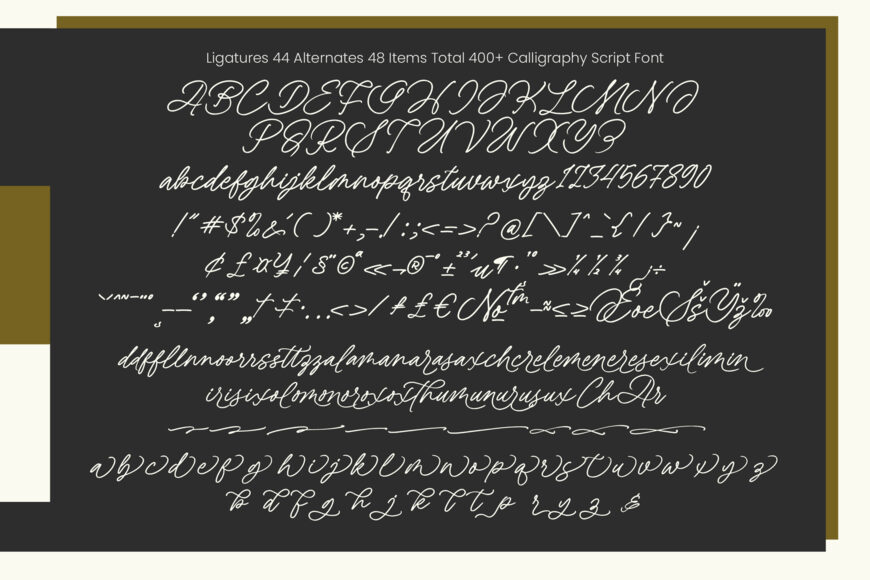 Ligatures 44 Alternates 48 Items Total 400+ Calligraphy Script Font
ABCDEFGHIJKLMNO
PQRSTUVWXYZ
abcdefghijklmnopqrstuvwxyz1234567890
!"#$%&'()*+,-./:;<=>?@[\]^_`{|}~¡
¢£¤¥¦§¨©ª«¬®¯°±²³´µ¶·¹º»¼½¾¿÷
–—‘’‚“”„†‡…‹›⁄₤£€№™−≈≤≥ŒœŠšŸž‰
ddffllnnoorrssttzzalamanarasaxchcrelemeneresexilimin
irisixolomonoroxoxThumunurusuxChAr
abcdefghijklmnopqrstuvwxyz
bdfghjkltpryz&